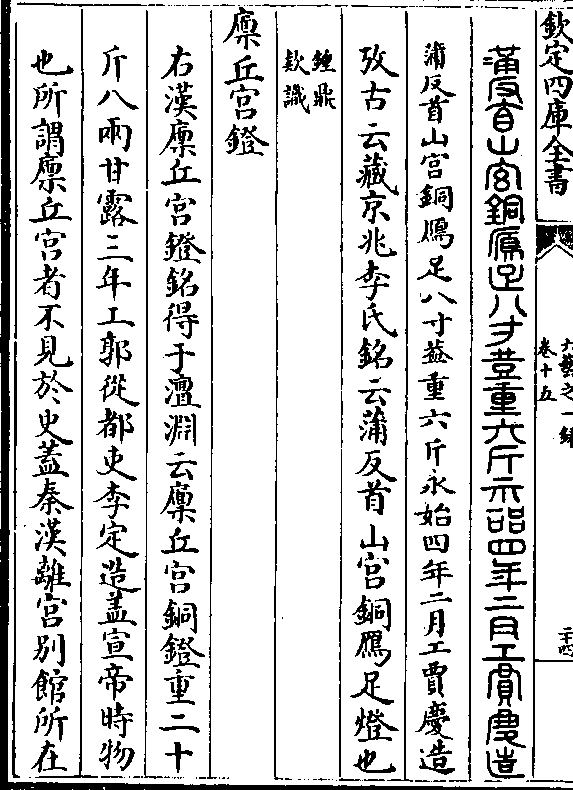 欽定四庫全書
六藝之一錄
卷十五
二十四
蒲反首山宮銅鴈足八寸登重六斤永始四年二月工賈慶造
蒲反首山宮銅鴈足八寸鐙重六斤永始四年二月工賈慶造
攷古云藏京兆李氏銘云蒲反首山宮銅鴈足燈也
鐘鼎
欵識
廩丘宮鐙
右漢廩丘宮鐙銘得于澶淵云廩丘宮銅鐙重二十
斤八兩甘露三年工郭從都吏李定造蓋宣帝時物
也所謂廩丘宮者不見於史蓋秦漢離宮別館所在